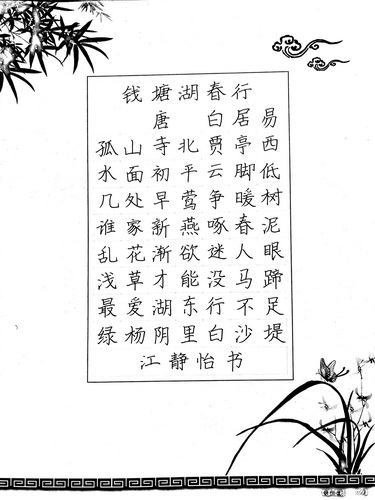 钱塘湖春行
唐 白居易
孤山寺北贾亭西
水面初平云脚低
几处早莺争暖树
谁家新燕啄春泥
乱花渐欲迷人眼
浅草才能没马蹄
最爱湖东行不足
绿杨阴里白沙堤
江静怡书